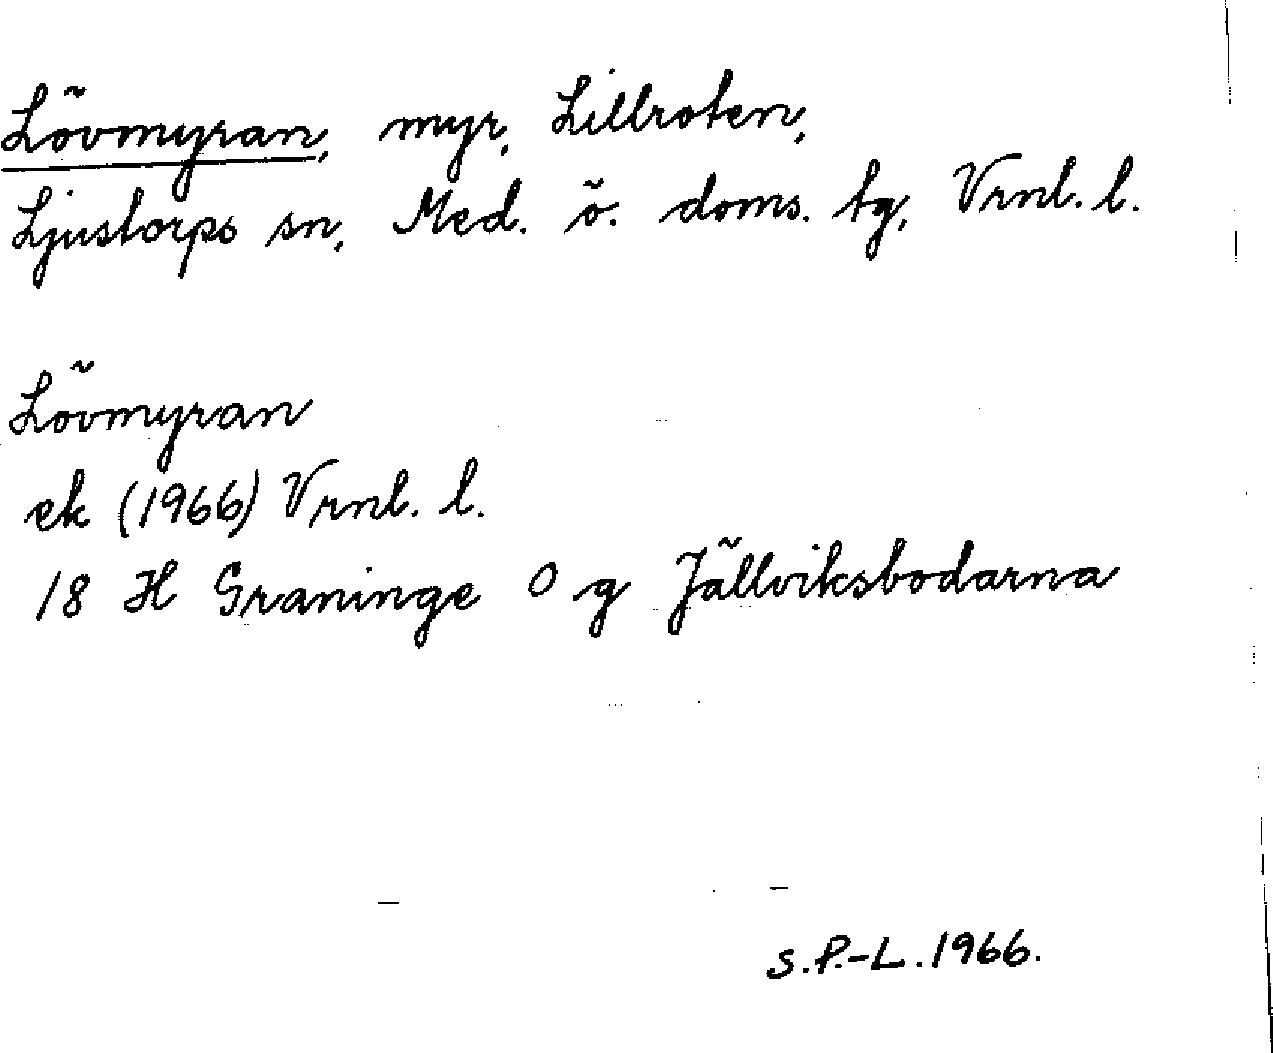 Lövmyran, myr, Lillroten,
Ljustorps sn, Med. ö. doms. tg, Vrnl. l.
Lövmyran
ek (1966) Vrnl. l.
18 H Graninge O g Jällviksbodarna
S.P.-L. 1966.